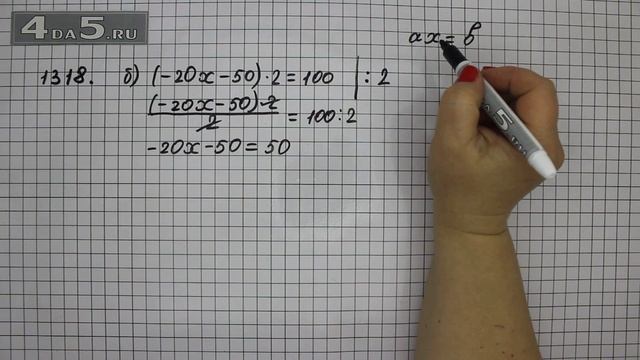 4DA5.RU
ax = b
1318. б) (-20x-50)·2=100 | :2
(-20x-50)·2 / 2 = 100:2
-20x-50=50